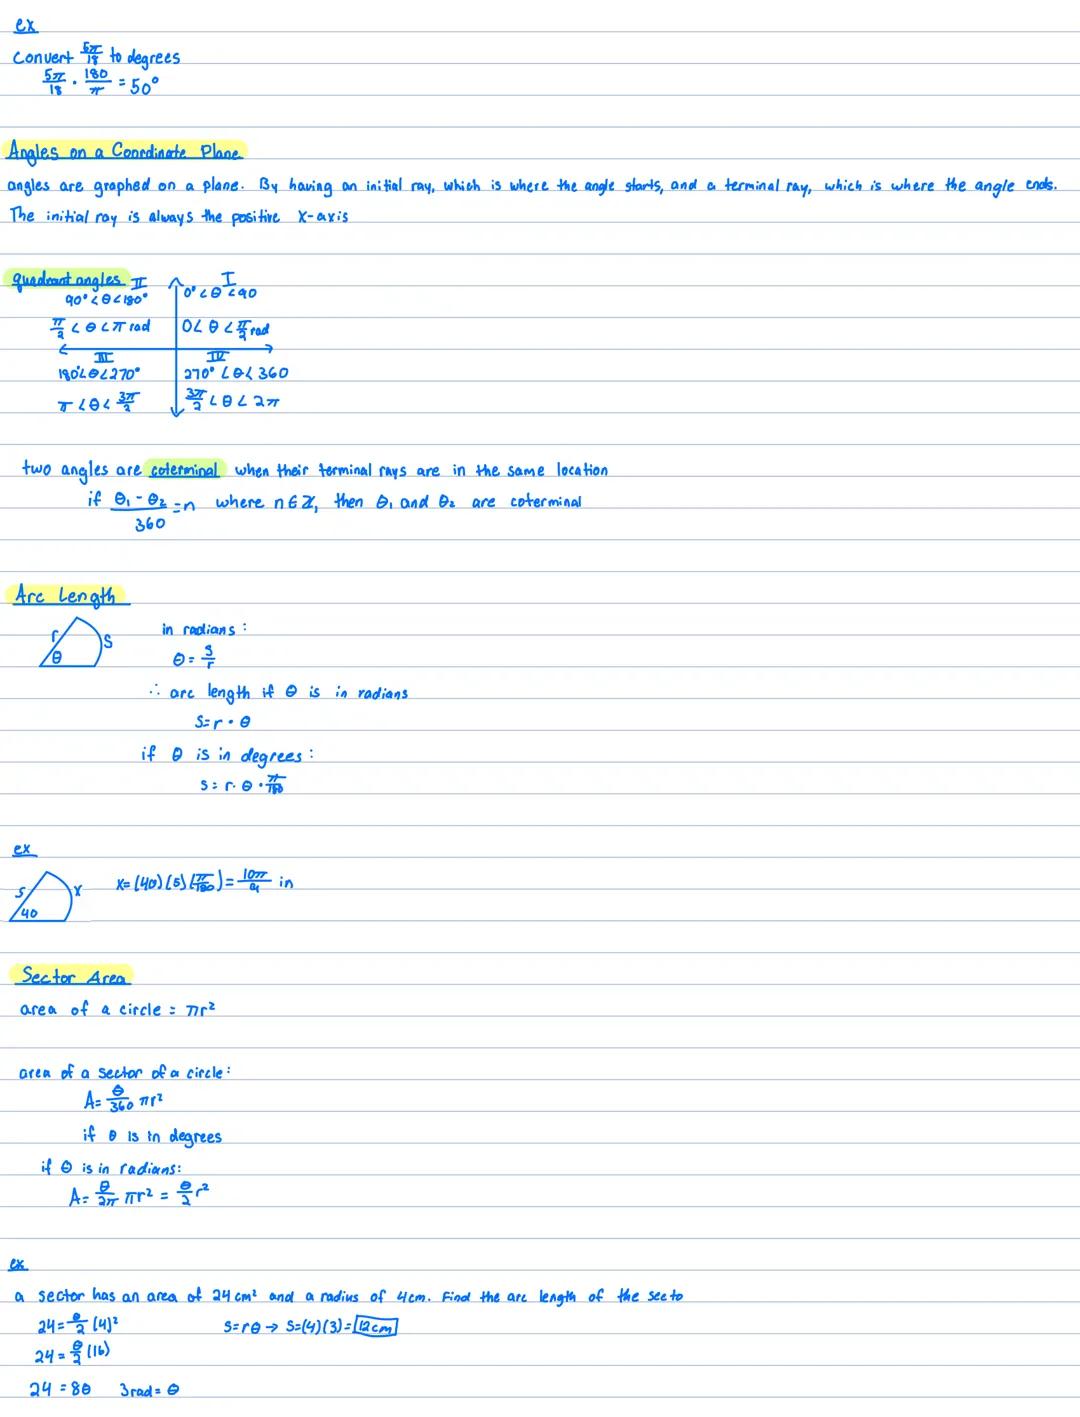 ex
Convert 5π/18 to degrees
5π/18 · 180/π = 50°
Angles on a Coordinate Plane
angles are graphed on a plane. By having an initial ray, which is where the angle starts, and a terminal ray, which is where the angle ends.
The initial ray is always the positive x-axis
quadrant angles
II
90° < θ < 180°
π/2 < θ < π rad
I
0° < θ < 90
0 < θ < π/2 rad
III
180° < θ < 270°
π < θ < 3π/2
IV
270° < θ < 360
3π/2 < θ < 2π
two angles are coterminal when their terminal rays are in the same location
if (θ₁ - θ₂)/360 = n where n ∈ ℤ, then θ₁ and θ₂ are coterminal
Arc Length
r
θ
S
in radians:
θ = s/r
∴ arc length if θ is in radians
S = r · θ
if θ is in degrees:
S = r · θ · π/180
ex
5
40
x
x = (40)(5)(π/180) = 10π/9 in
Sector Area
area of a circle = πr²
area of a sector of a circle:
A = θ/360 πr²
if θ is in degrees
if θ is in radians:
A = θ/2π πr² = θ/2 r²
ex
a sector has an area of 24 cm² and a radius of 4cm. Find the arc length of the secto
24 = θ/2 (4)²
S = rθ → S = (4)(3) = 12cm
24 = θ/2 (16)
24 = 8θ 3 rad = θ